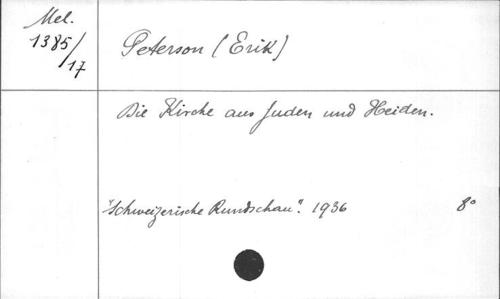 Mel.
1385/17
Peterson (Erik)
Die Kirche aus Juden und Heiden.
"Schweizerische Rundschau". 1936 8°